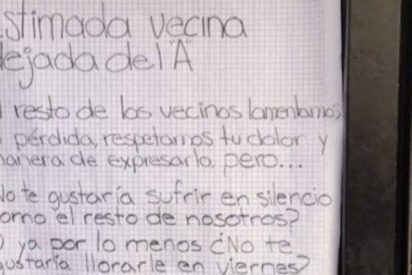 stimada vecina
dejada del A
resto de los vecinos lamentamos
pérdida, respetamos tu dolor y
anera de expresarlo, pero...
No te gustaría sufrir en silencio
omo el resto de nosotros?
O ya por lo menos ¿No te
ustaría llorarle en viernes?